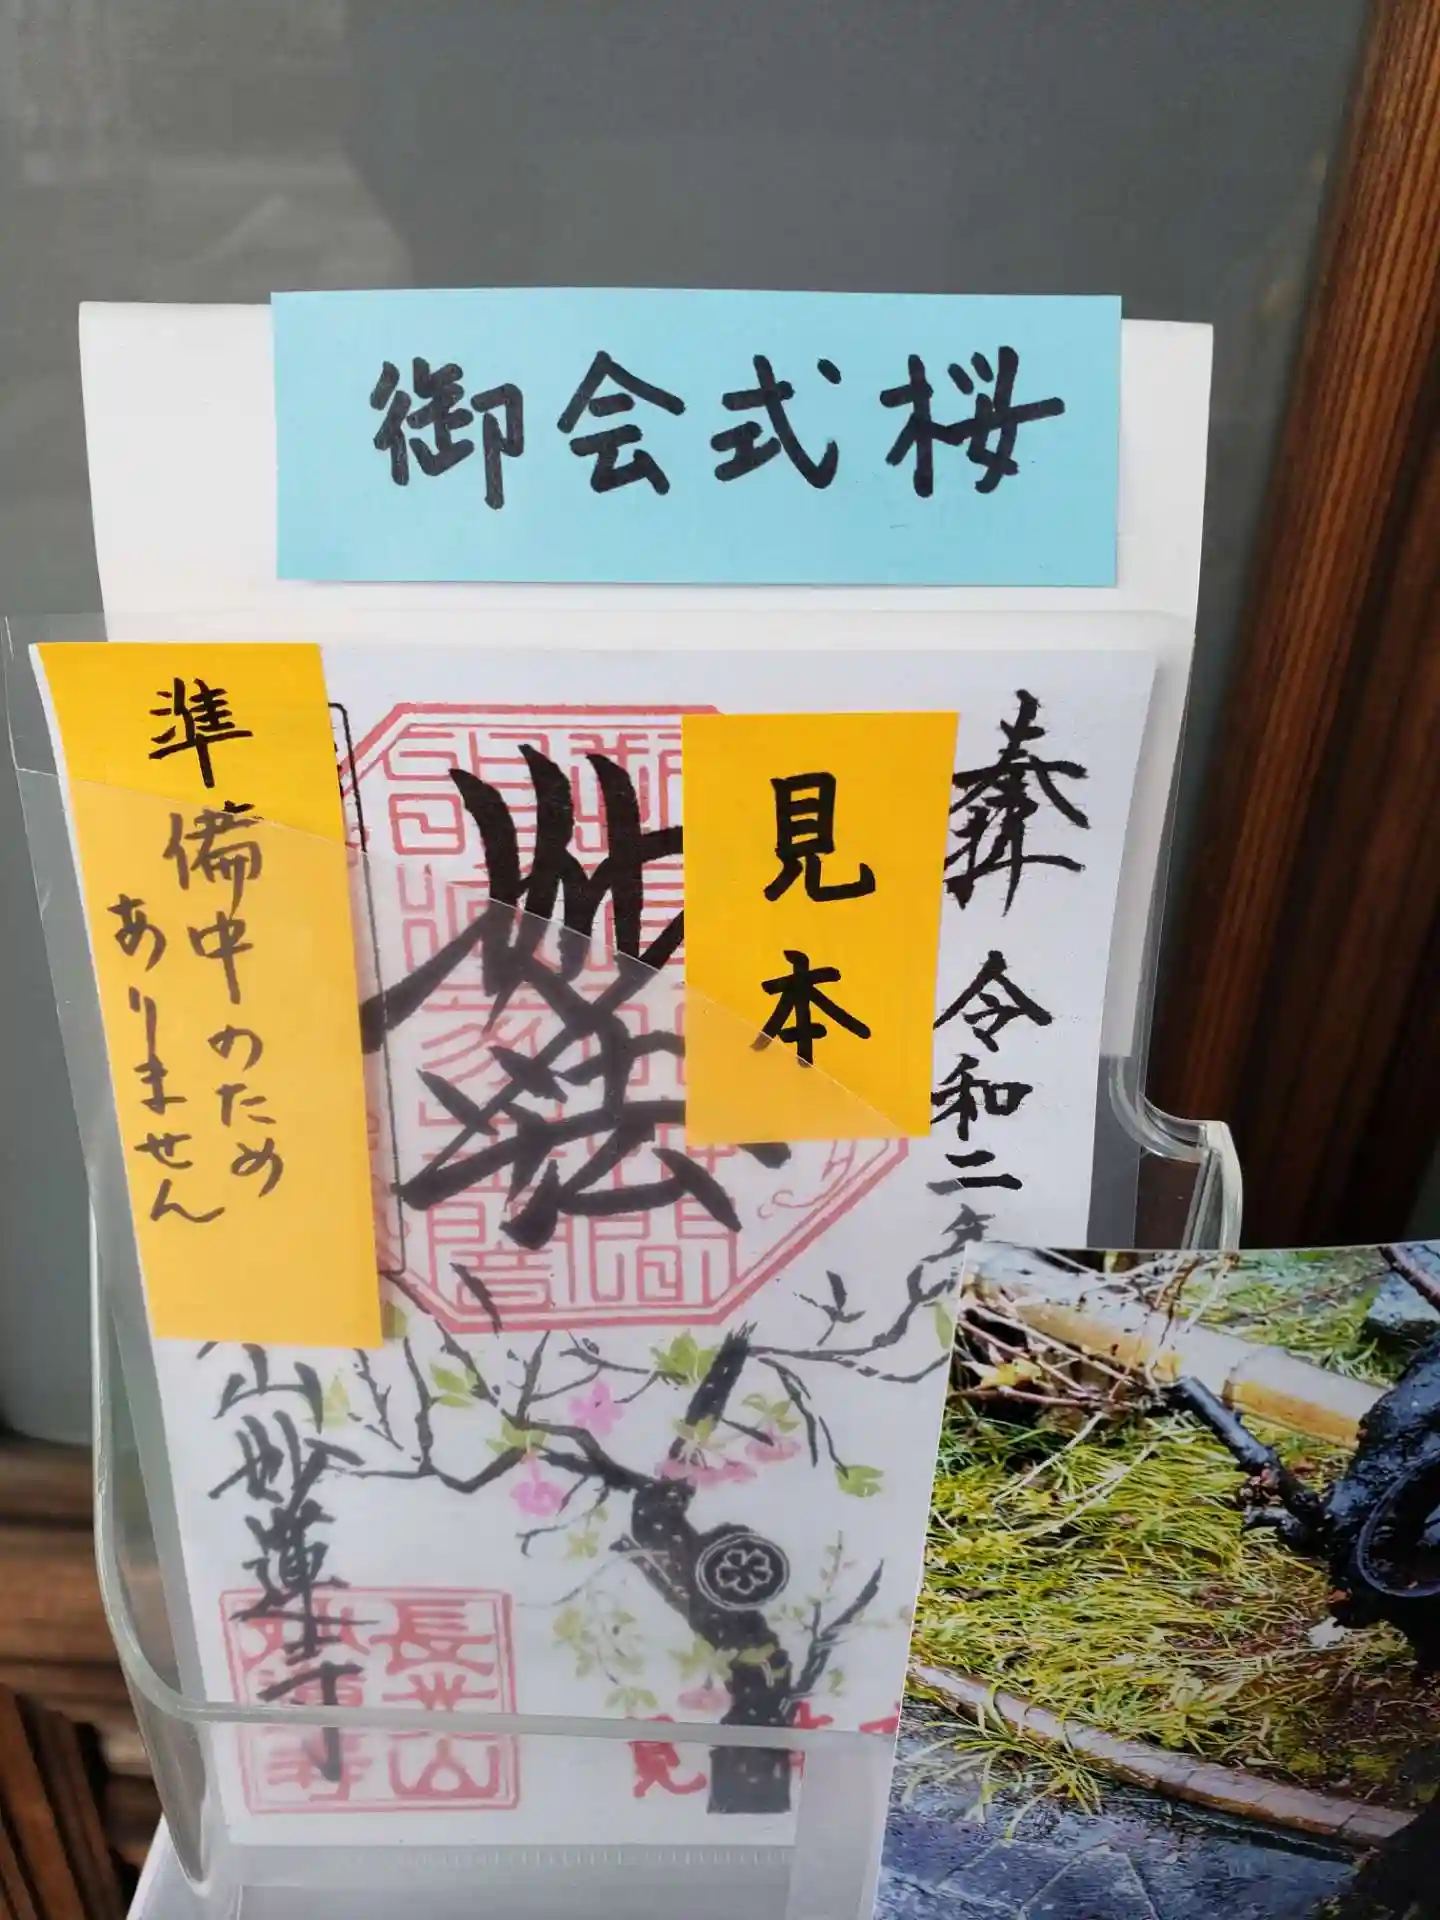 御会式桜
奉拝
令和二年
見本
妙法
準備中のため
ありません
山妙蓮寺
長光山
妙蓮寺
見本